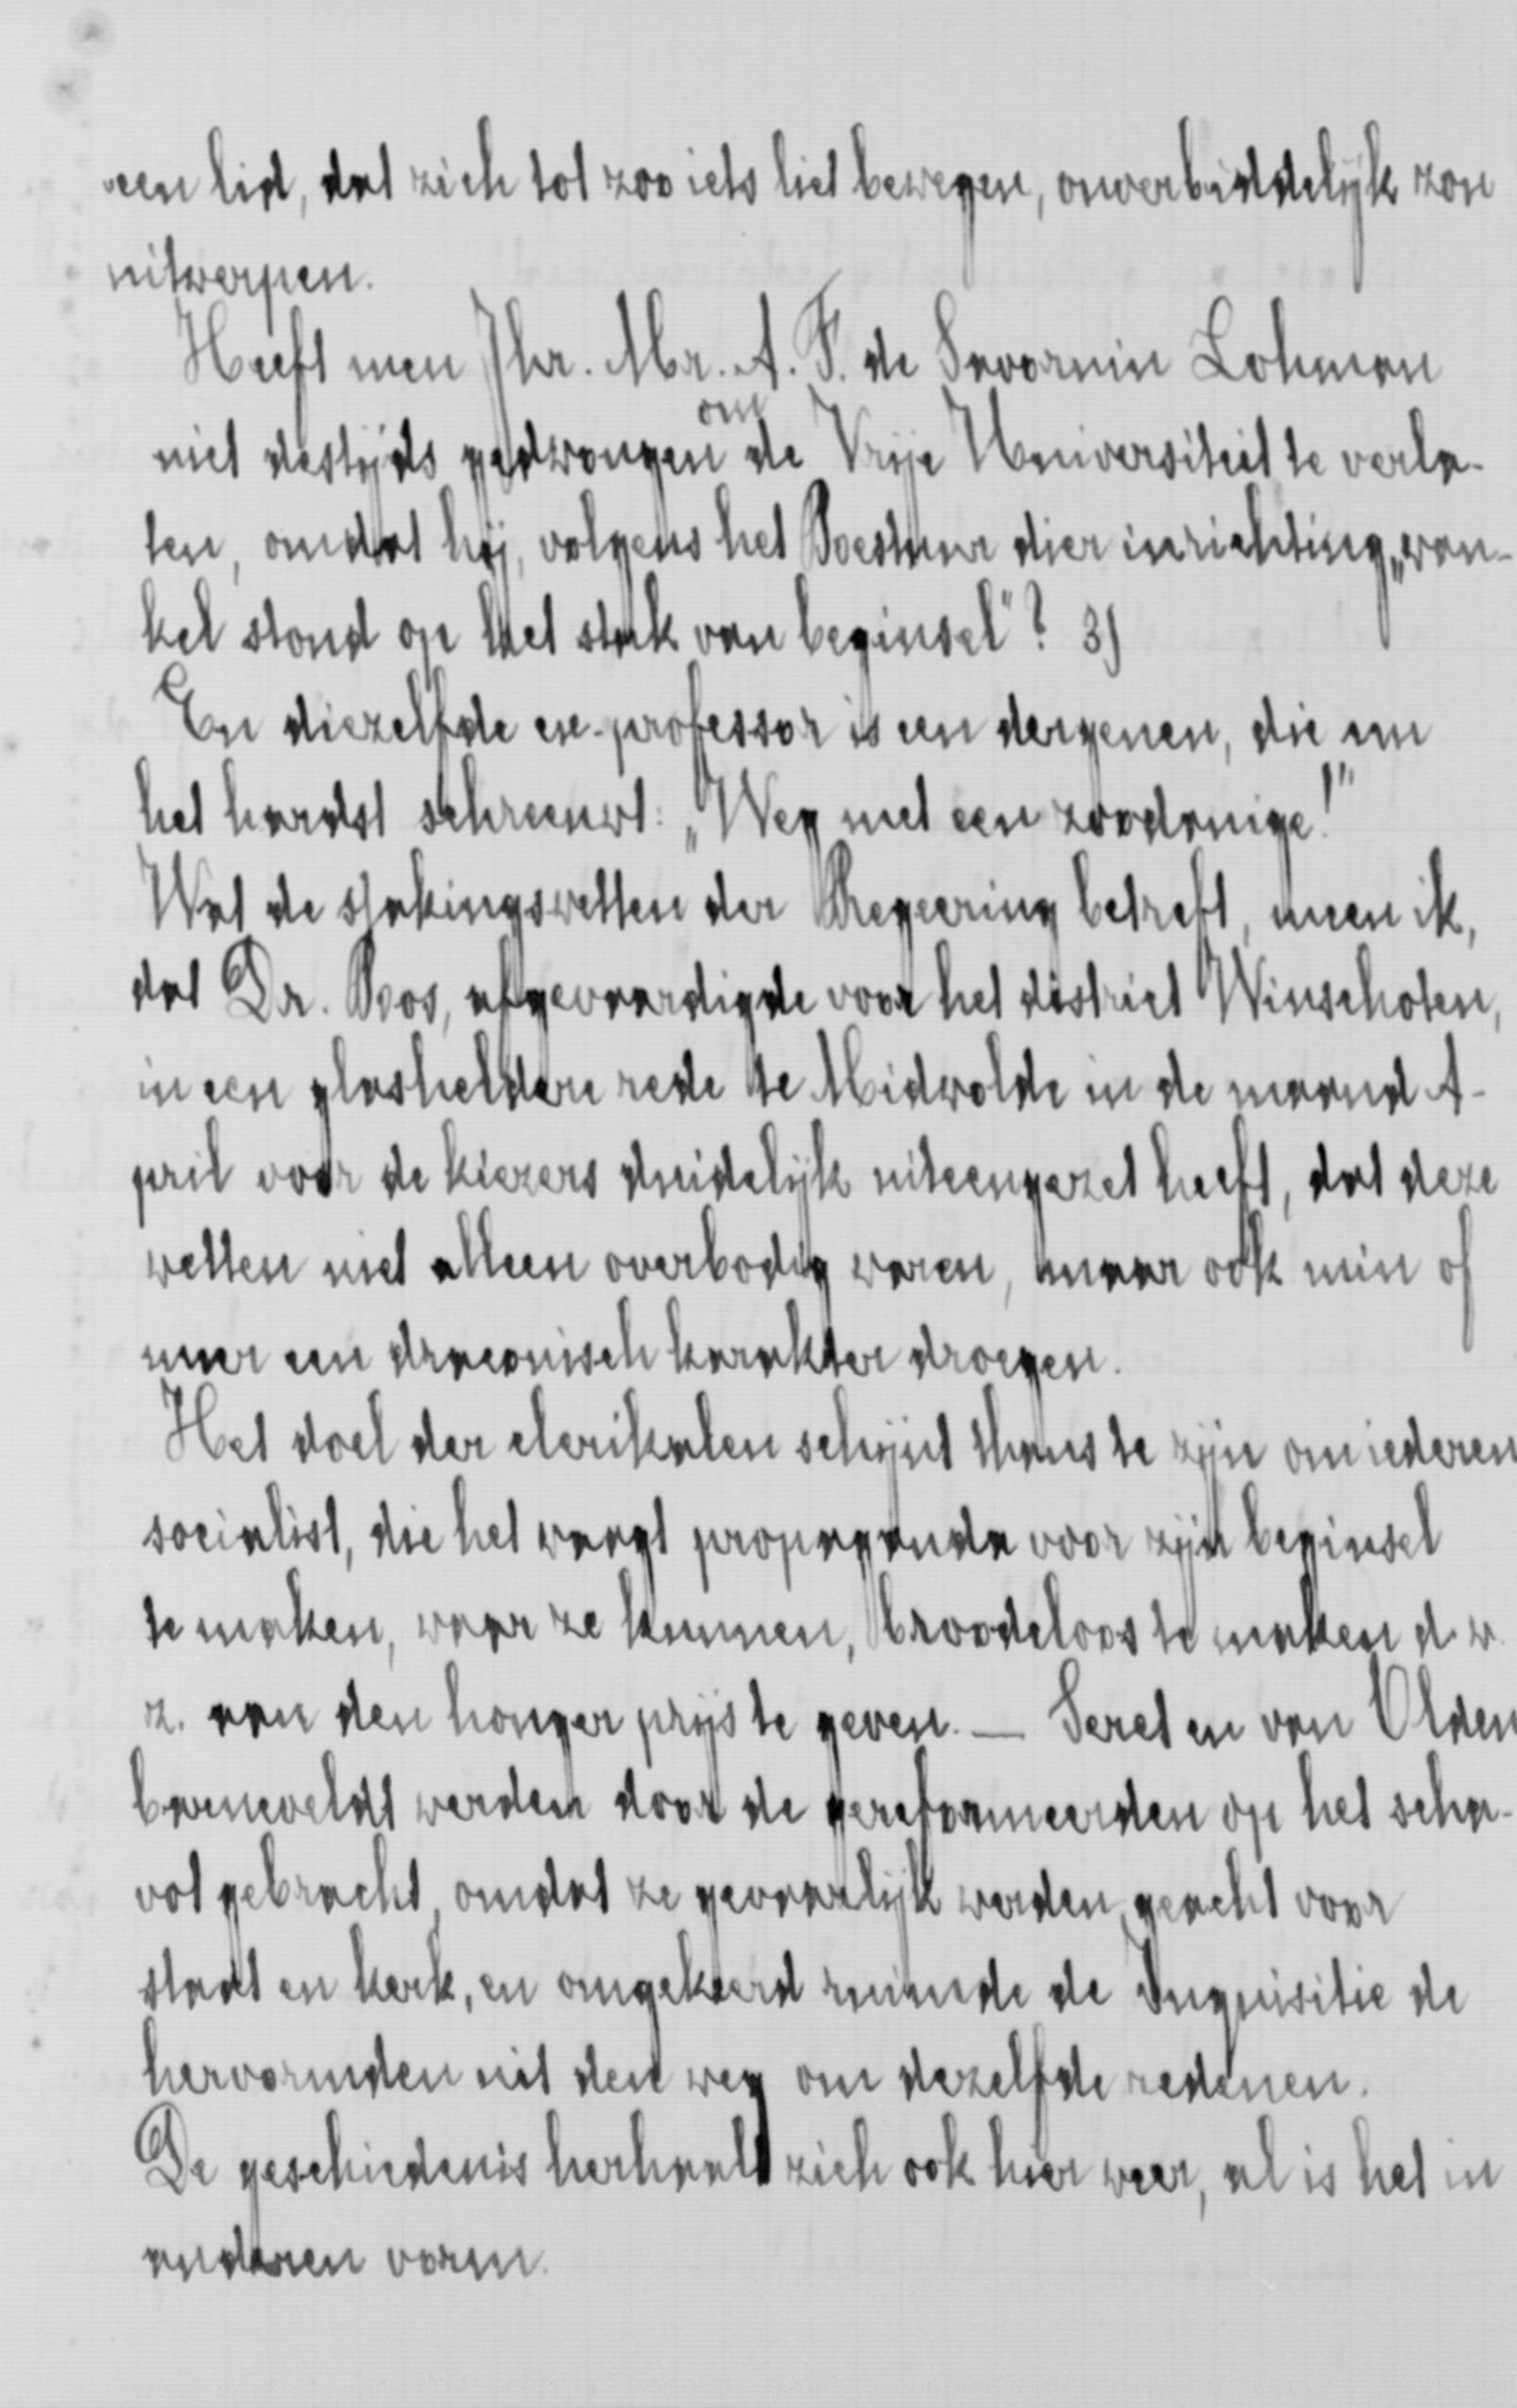 een lid, dat zich tot zoo iets liet bewegen, onverbiddelijk zou
uitwerpen.
Heeft men Jhr. Mr. A. F. de Savornin Lohman
om
niet destijds gedwongen de Vrije Universiteit te verla-
ten, omdat hij, volgens het Bestuur dier inrichting „wan-
kel stond op het stuk van beginsel"? 3)
En diezelfde ex-professor is een dergenen, die am
het hardst schreeuwt: „Weg met een zoodanige!"
Wat de stakingswetten der Regeering betreft, meen ik,
dat Dr. Bos, afgevaardigde voor het district Winschoten,
in een glasheldere rede te Midwolde in de maand A-
pril voor de kiezers duidelijk uiteengezet heeft, dat deze
wetten niet alleen overbodig waren, maar ook min of
meer een draconisch karakter droegen.
Het doel der clerikalen schijnt thans te zijn om iederen
socialist, die het waagt propaganda voor zijn beginsel
te maken, waar ze kunnen, broodeloos te maken d. w.
z. aan den honger prijs te geven. — Servet en van Olden
barneveldt werden door de gereformeerden op het scha-
vot gebracht, omdat ze gevaarlijk werden geacht voor
staat en kerk, en omgekeerd ruimde de Inquisitie de
hervormden uit den weg om dezelfde redenen.
De geschiedenis herhaalt zich ook hier weer, al is het in
anderen vorm.